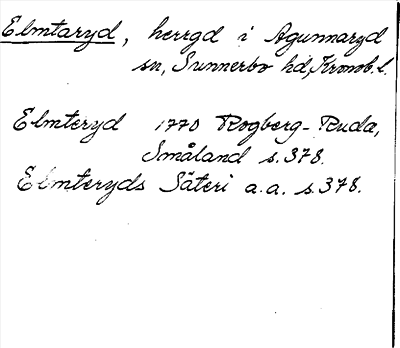 Elmtaryd, herrgd i Agunnaryd
sn, Sunnerbo hd, Kronob. l.
Elmteryd 1770 Rogberg-Ruda,
Småland s. 378.
Elmteryds Säteri a.a. s. 378.